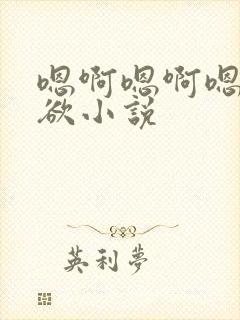 嗯啊嗯啊嗯
欲小説
英利夢